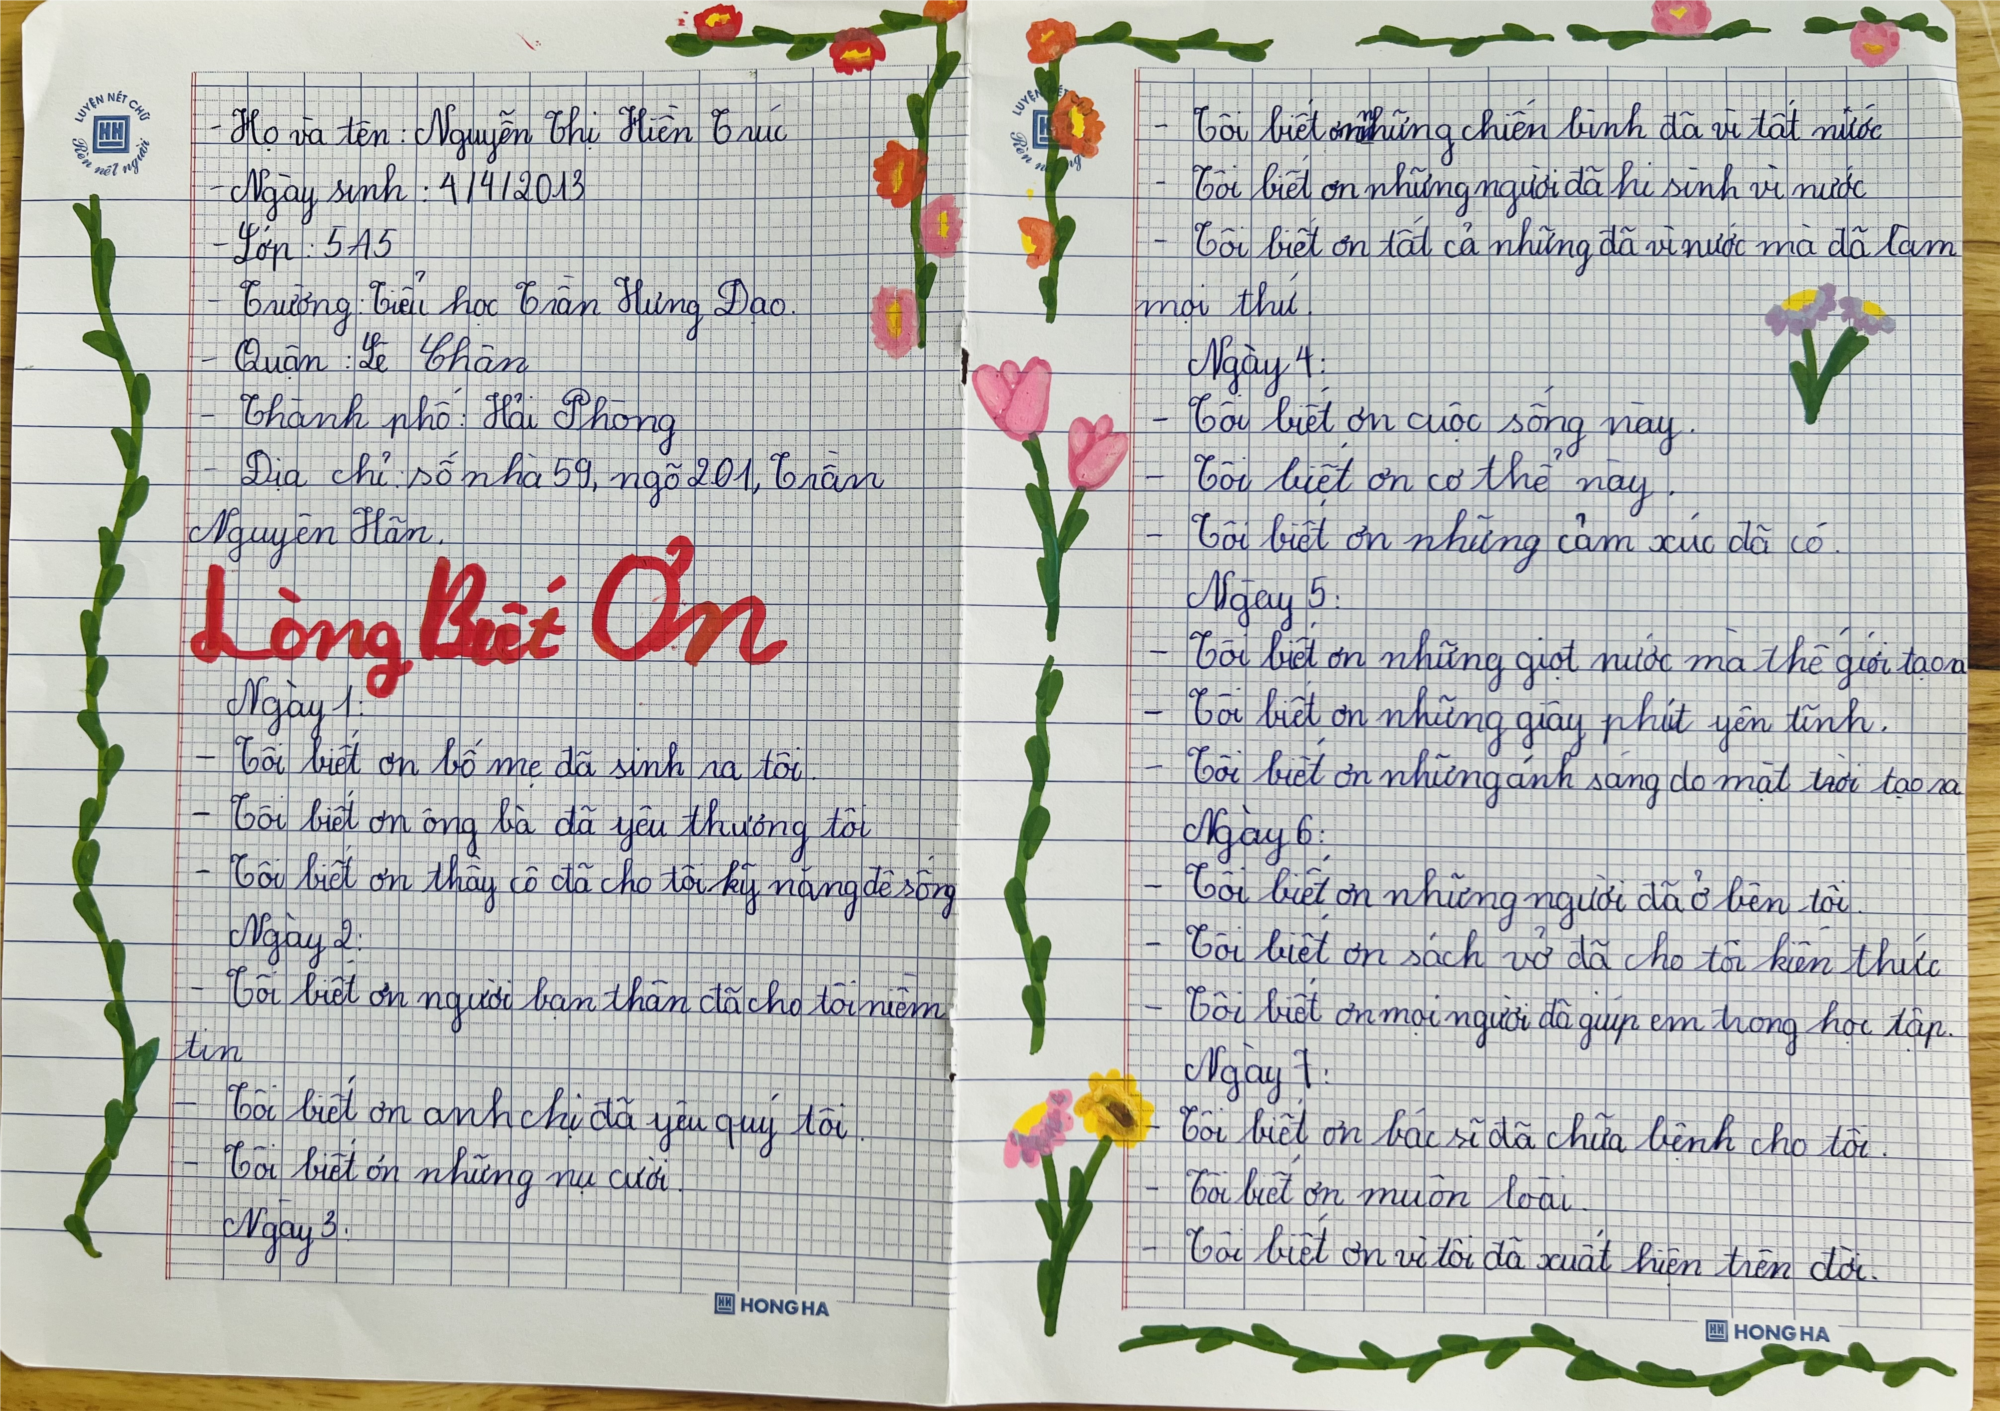 LUYỆN NÉT CHỮ
HH
Rèn nết người
- Họ và tên : Nguyễn Thị Hiền Trúc
- Ngày sinh : 4/4/2013
- Lớp : 5A5
- Trường : Tiểu học Trần Hưng Đạo.
- Quận : Lê Chân
- Thành phố : Hải Phòng
- Địa chỉ : số nhà 59, ngõ 201, Trần
Nguyên Hãn.
Lòng Biết Ơn
Ngày 1:
- Tôi biết ơn bố mẹ đã sinh ra tôi.
- Tôi biết ơn ông bà đã yêu thương tôi
- Tôi biết ơn thầy cô đã cho tôi kỹ năng để sống
Ngày 2:
- Tôi biết ơn người bạn thân đã cho tôi niềm
tin
- Tôi biết ơn anh chị đã yêu quý tôi.
- Tôi biết ơn những nụ cười.
Ngày 3:
HH HONG HA
LUYỆN NÉT CHỮ
- Tôi biết ơn những chiến binh đã vì tất nước
- Tôi biết ơn những người đã hi sinh vì nước
- Tôi biết ơn tất cả những đã vì nước mà đã làm
mọi thứ.
Ngày 4:
- Tôi biết ơn cuộc sống này.
- Tôi biết ơn cơ thể này.
- Tôi biết ơn những cảm xúc đã có.
Ngày 5:
- Tôi biết ơn những giọt nước mà thế giới tạo ra
- Tôi biết ơn những giây phút yên tĩnh.
- Tôi biết ơn những ánh sáng do mặt trời tạo ra
Ngày 6:
- Tôi biết ơn những người đã ở bên tôi.
- Tôi biết ơn sách vở đã cho tôi kiến thức
- Tôi biết ơn mọi người đã giúp em trong học tập.
Ngày 7:
- Tôi biết ơn bác sĩ đã chữa bệnh cho tôi.
- Tôi biết ơn muôn loài.
- Tôi biết ơn vì tôi đã xuất hiện trên đời.
HH HONG HA